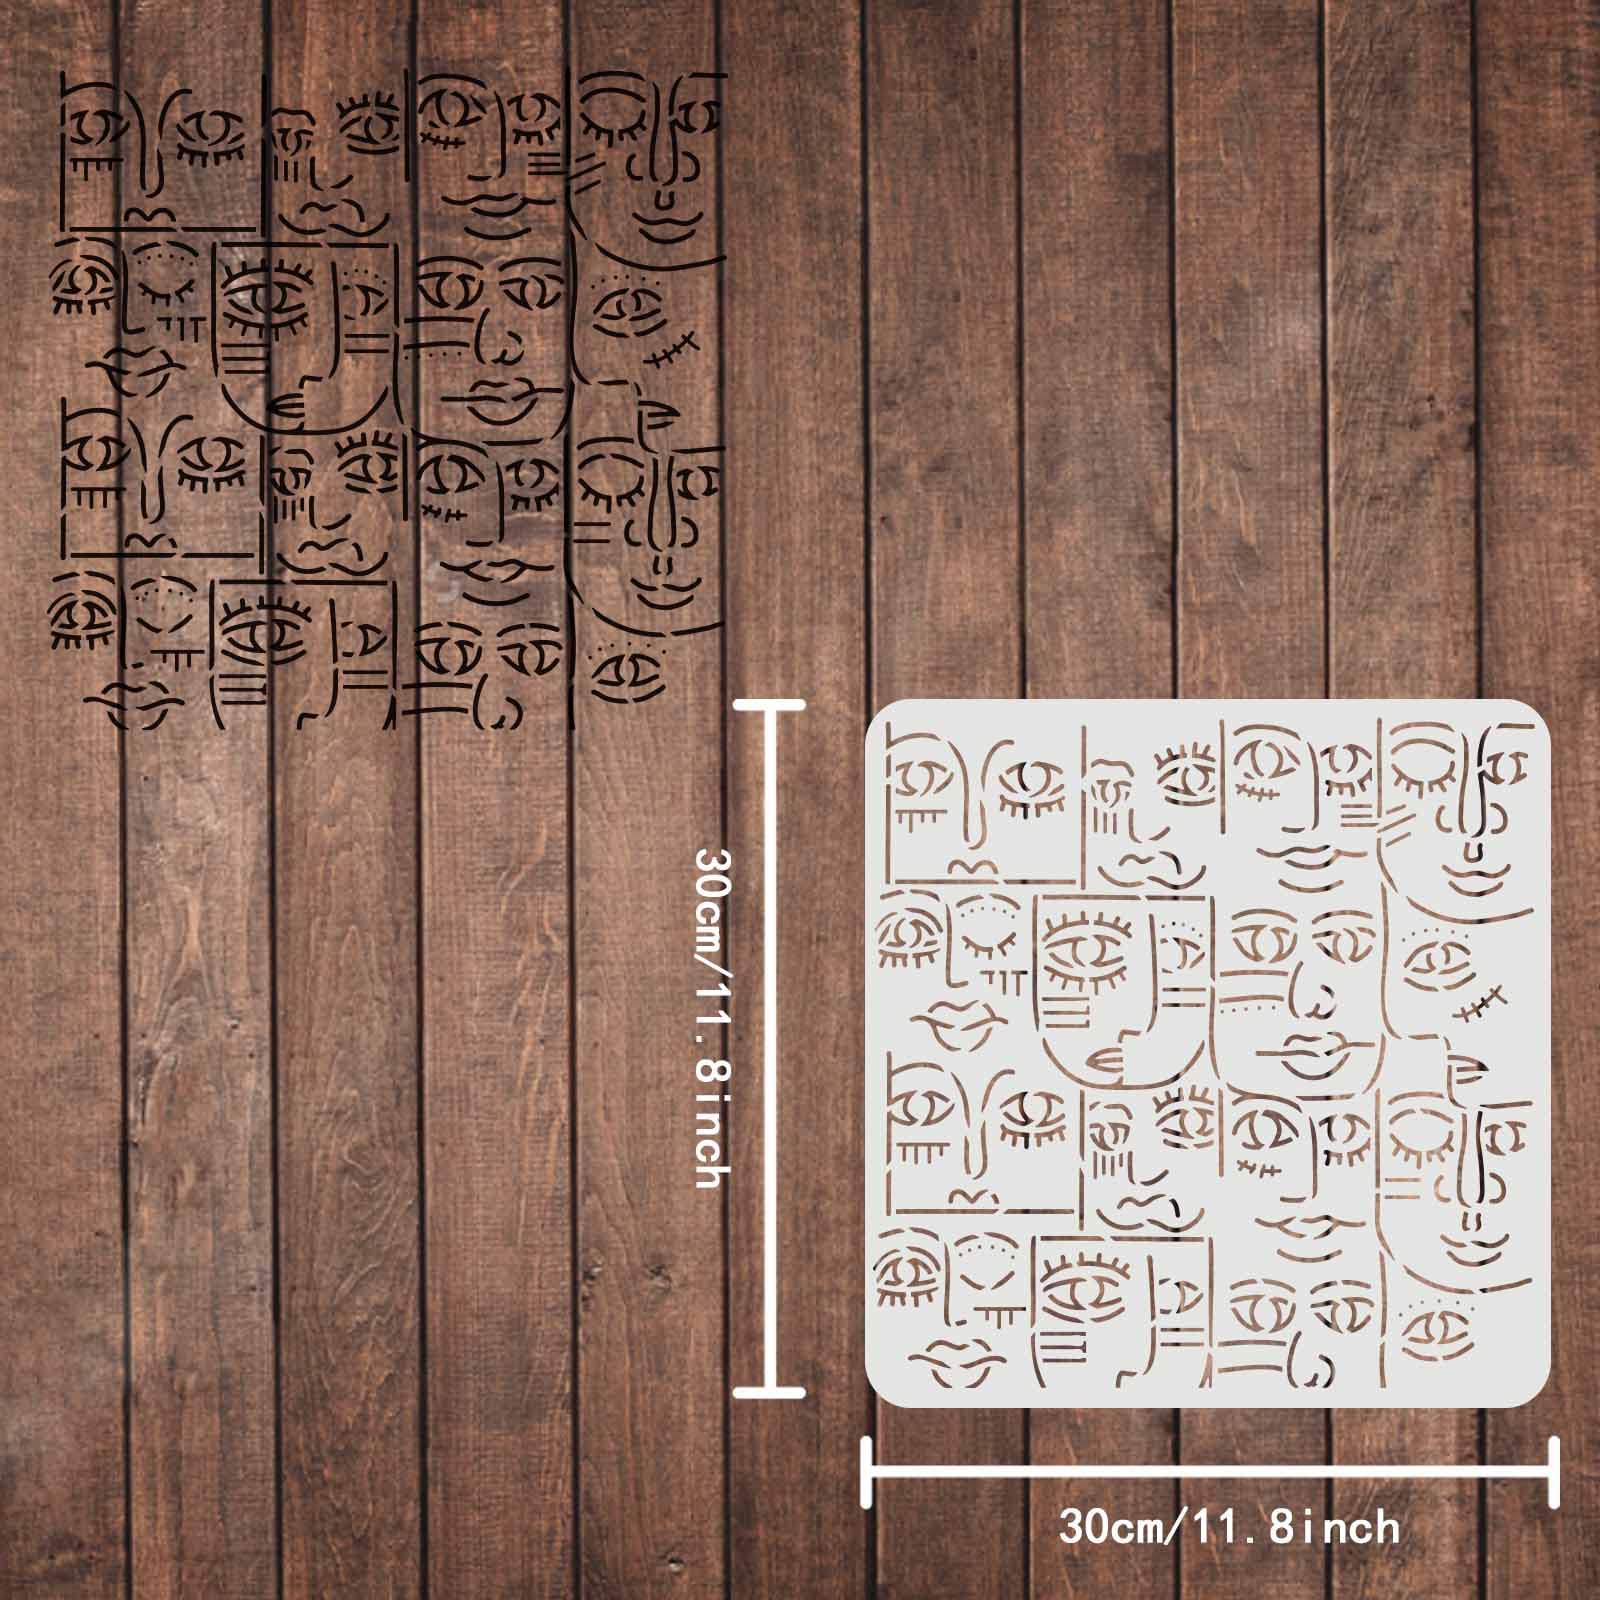 30cm/11.8inch
30cm/11.8inch